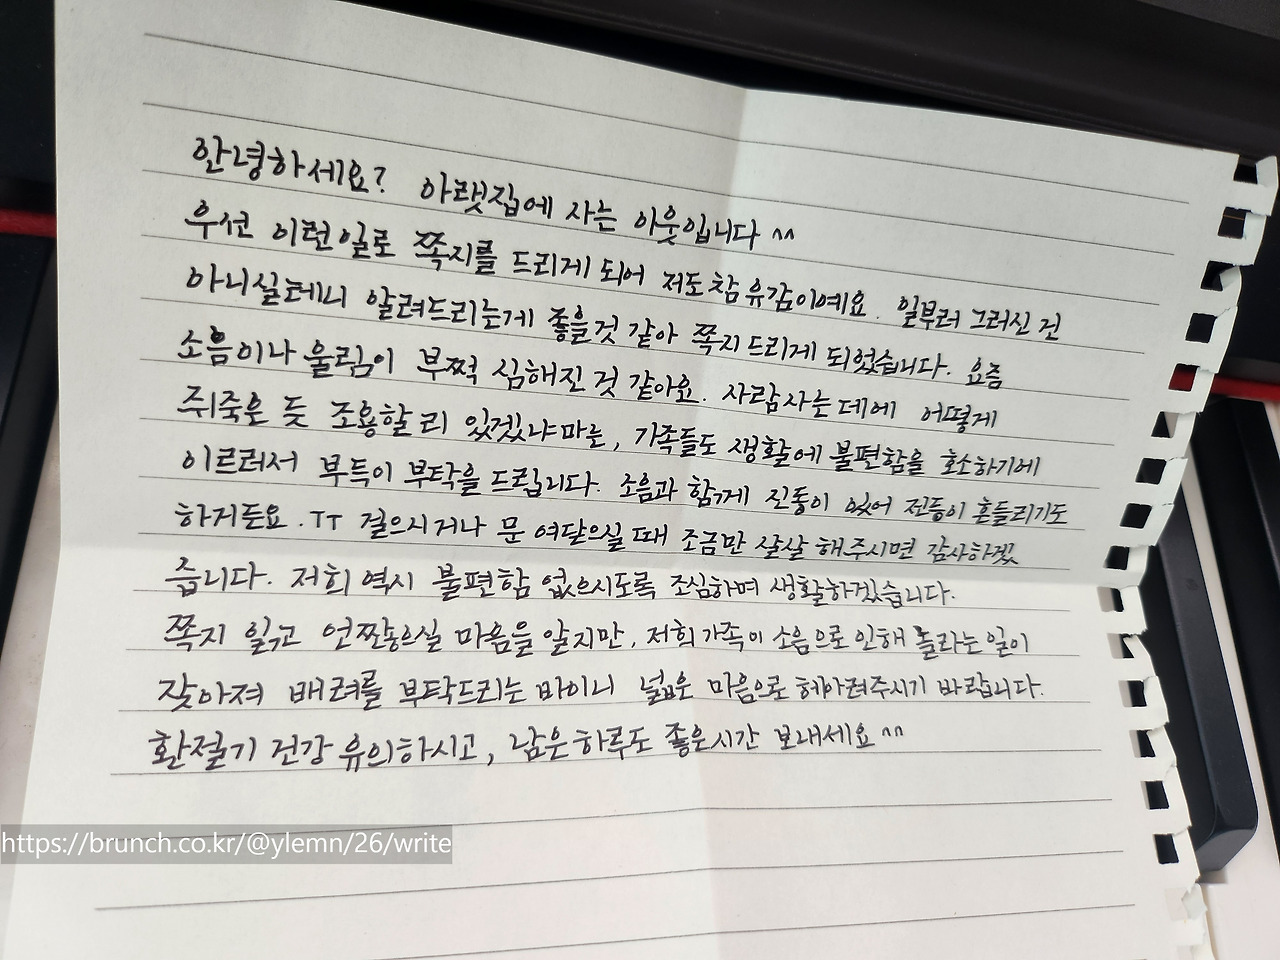 안녕하세요? 아랫집에 사는 이웃입니다 ^^
우선 이런일로 쪽지를 드리게 되어 저도 참 유감이예요. 일부러 그러신 건
아니실테니 알려드리는게 좋을것 같아 쪽지 드리게 되었습니다. 요즘
소음이나 울림이 부쩍 심해진 것 같아요. 사람사는데에 어떻게
쥐죽은 듯 조용할리 있겠냐마는, 가족들도 생활에 불편함을 호소하기에
이르러서 부득이 부탁을 드립니다. 소음과 함께 진동이 있어 전등이 흔들리기도
하거든요. TT 걸으시거나 문 여닫으실 때 조금만 살살 해주시면 감사하겠
습니다. 저희 역시 불편함 없으시도록 조심하며 생활하겠습니다.
쪽지 읽고 언짢으실 마음을 알지만, 저희 가족이 소음으로 인해 놀라는 일이
잦아져 배려를 부탁드리는 바이니 넓은 마음으로 헤아려주시기 바랍니다.
환절기 건강 유의하시고, 남은 하루도 좋은시간 보내세요^^
https://brunch.co.kr/@ylemn/26/write